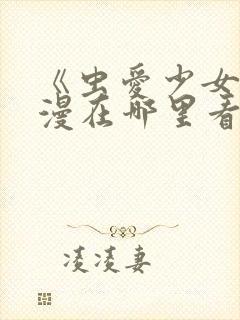 《虫爱少女
漫在哪里看
凌凌妻